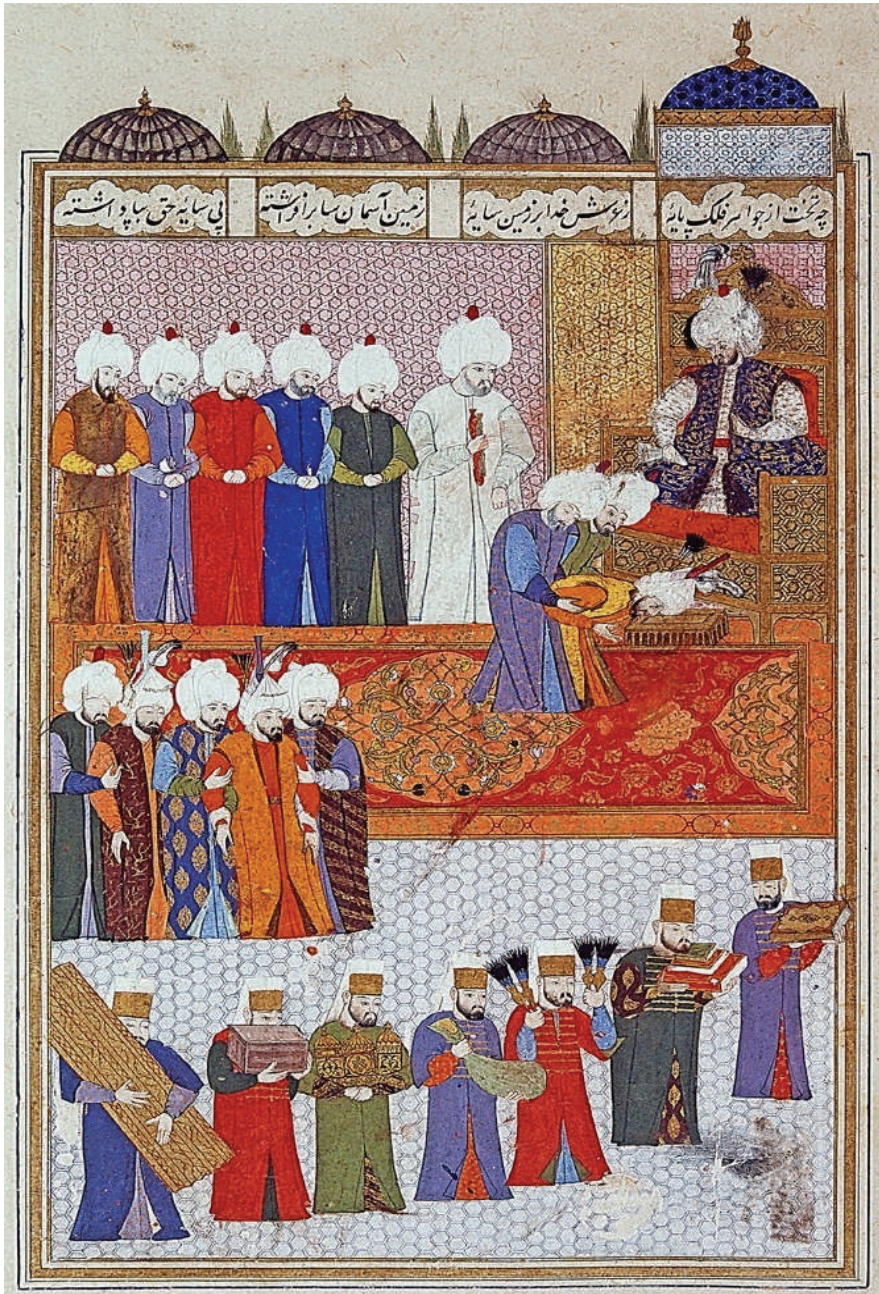 چه تخت از جواهر فلک پایهٔ
زعرش خدا بر زمین سایهٔ
زمین آسمان سا برافراشته
پی سایهٔ حق بپا داشته